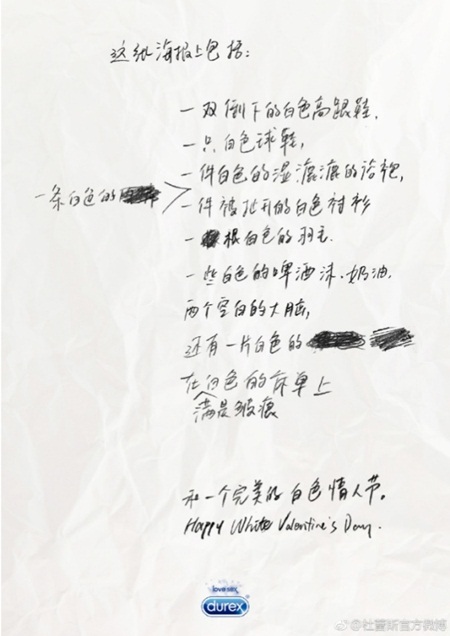 这张海报上包括:
一双倒下的白色高跟鞋,
一只白色球鞋,
一件白色的湿漉漉的浴袍,
一条白色的
一件被扯开的白色衬衫
一根白色的羽毛.
一些白色的啤酒沫.奶油.
两个空白的大脑,
还有一片白色的
在白色的床单上
满是瑕痕
和一个完美的白色情人节。
Happy White Valentine's Day.
love sex
durex
@杜蕾斯官方微博